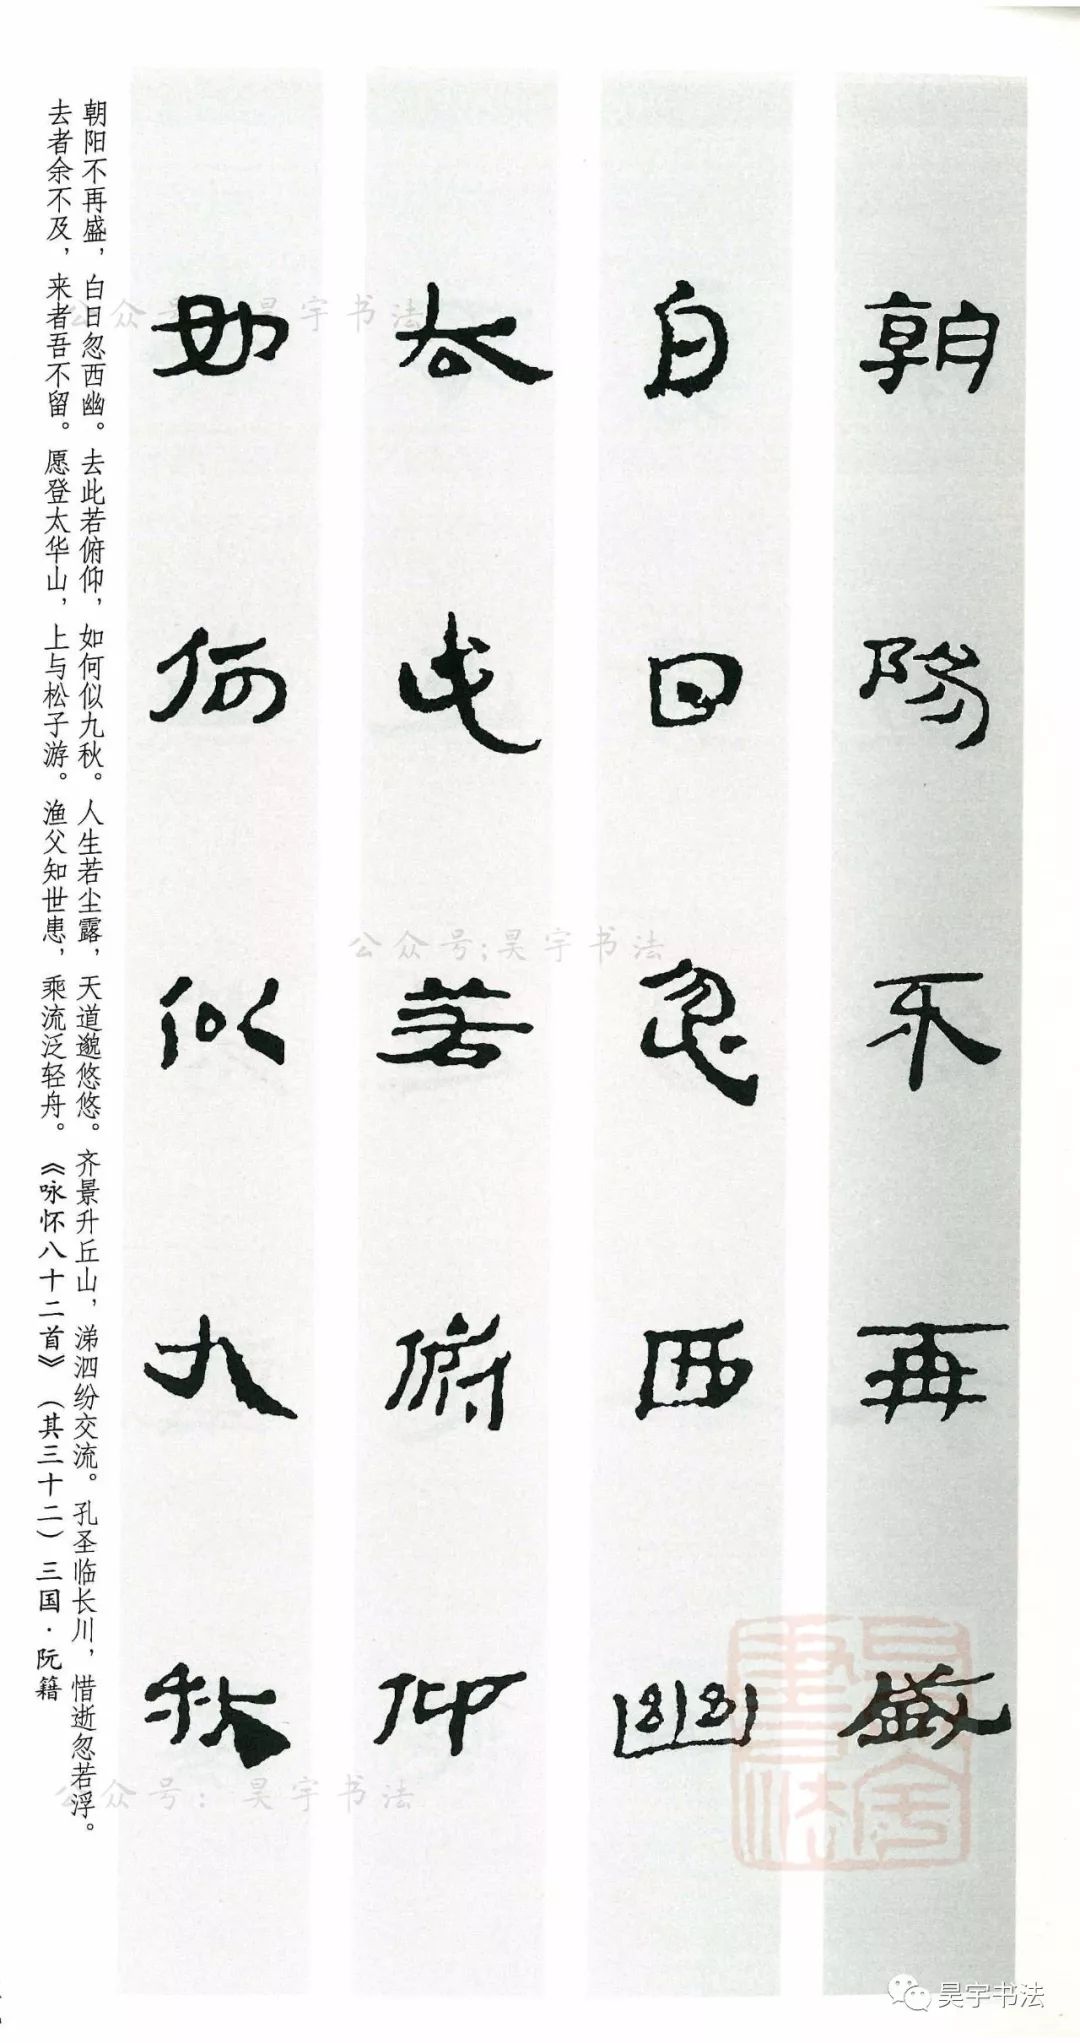 朝陽不再盛
白日忽西幽
去此若俯仰
如何似九秋
朝阳不再盛，白日忽西幽。去此若俯仰，如何似九秋。人生若尘露，天道邈悠悠。齐景升丘山，涕泗纷交流。孔圣临长川，惜逝忽若浮。
去者余不及，来者吾不留。愿登太华山，上与松子游。渔父知世患，乘流泛轻舟。《咏怀八十二首》（其三十二）三国·阮籍
公众号：昊宇书法
公众号：昊宇书法
公众号：昊宇书法
昊宇书法